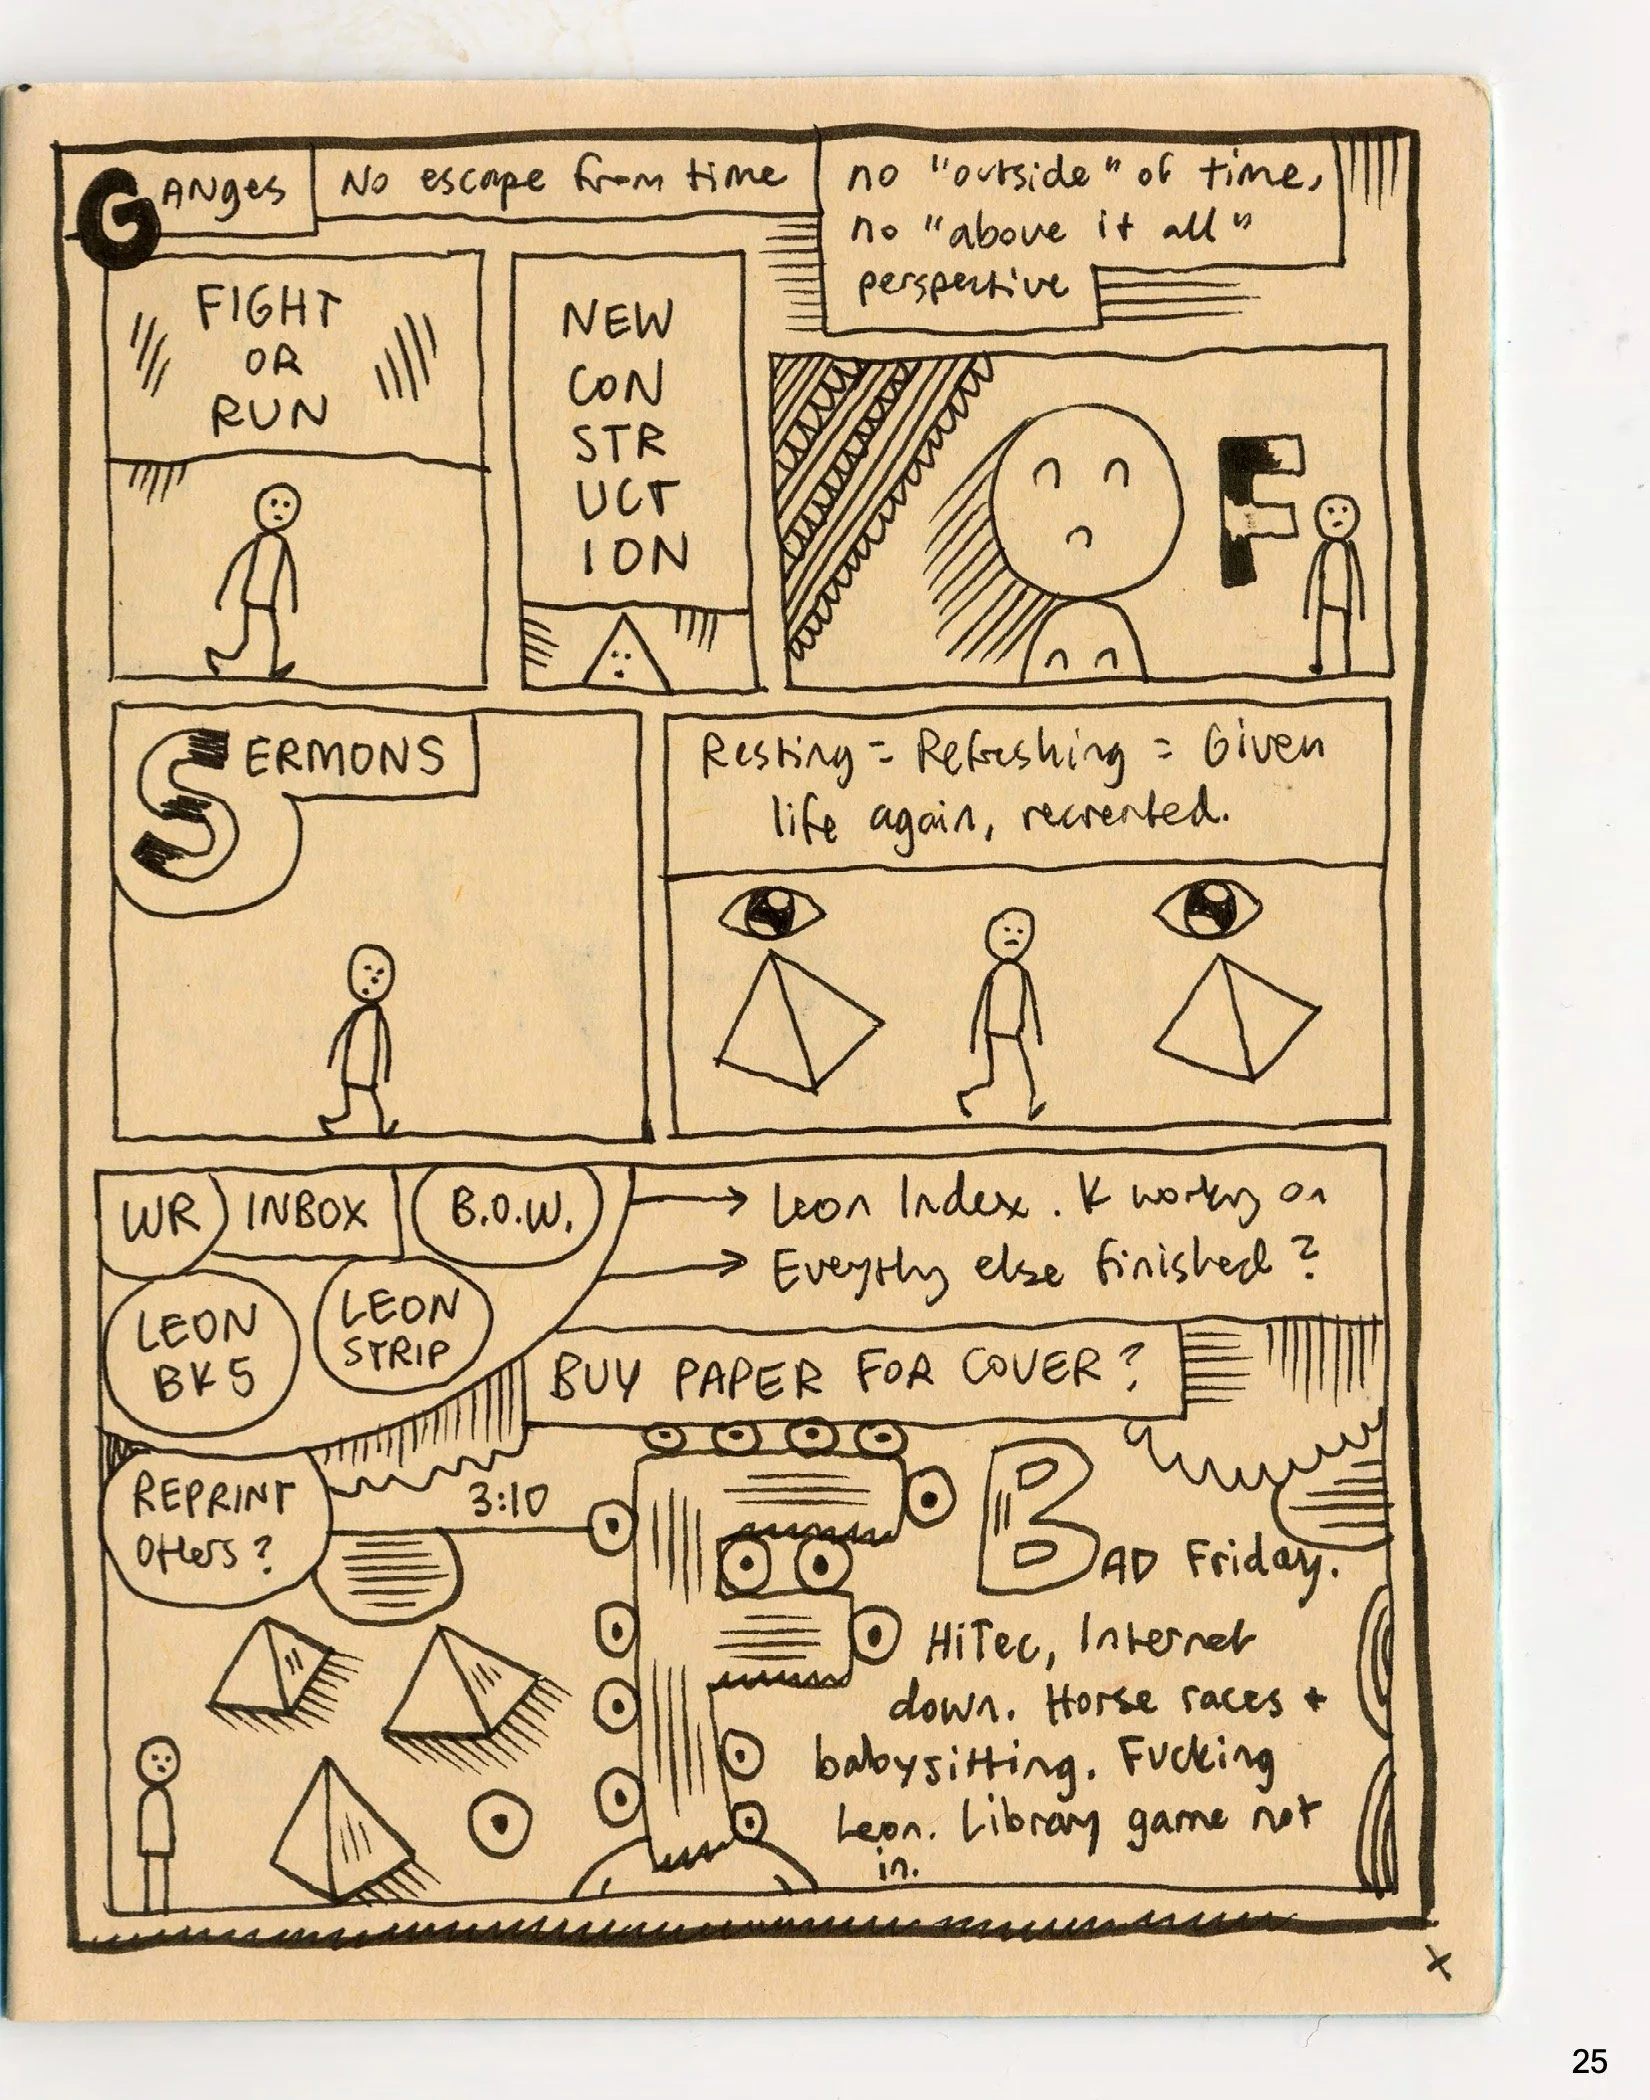 GANges
No escape from time
no "outside" of time,
no "above it all"
perspective
FIGHT
OR
RUN
NEW
CON
STR
UCT
ION
F
SERMONS
Resting = Refreshing = Given
life again, recreated.
WR
INBOX
B.O.W.
Leon Index. K working on
Everything else finished?
LEON
BK5
LEON
STRIP
BUY PAPER FOR COVER?
REPRINT
OtHers?
3:10
F
BAD Friday.
HiTec, Internet
down. Horse races +
babysitting. Fucking
Leon. Library game not
in.
x
25